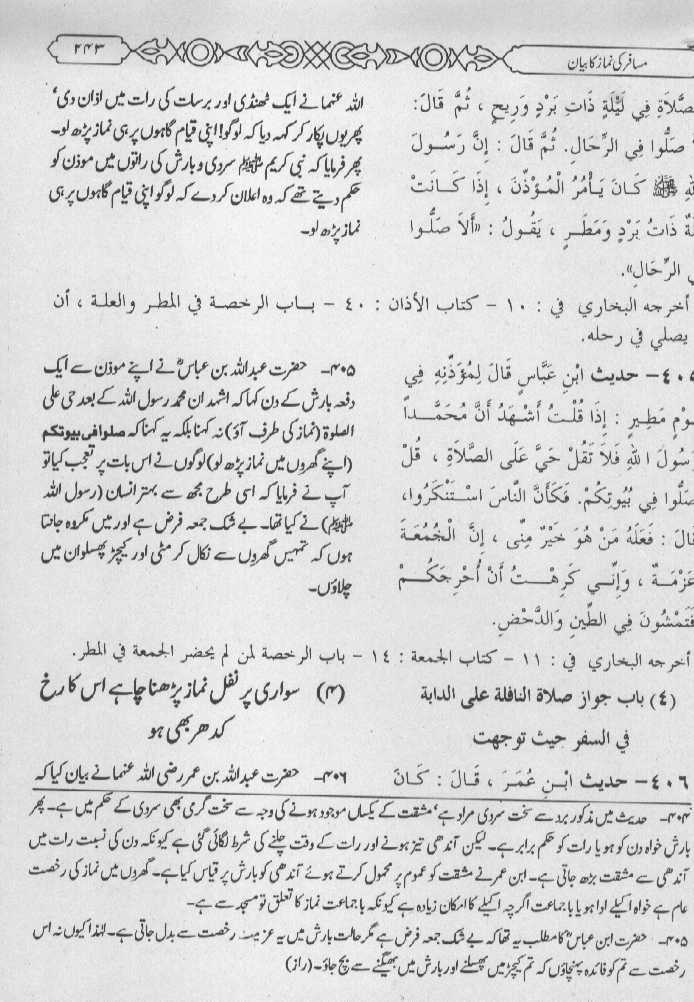 مسافر کی نماز کا بیان
۲۴۳
صَّلَاةِ فِي لَيْلَةٍ ذَاتِ بَرْدٍ وَرِيحٍ ، ثُمَّ قَالَ:
صَلُّوا فِي الرِّحَال. ثُمَّ قَالَ : إِنَّ رَسُولَ
ﷺ كَانَ يَأْمُرُ الْمُؤَذِّنَ ، إِذَا كَانَتْ
ذَاتُ بَرْدٍ وَمَطَرٍ ، يَقُولُ : «أَلَا صَلُّوا
الرِّحَالِ».
اللہ عنہما نے ایک ٹھنڈی اور برسات کی رات میں اذان دی‘
پھر یوں پکار کر کہہ دیا کہ لوگو! اپنی قیام گاہوں پر ہی نماز پڑھ لو۔
پھر فرمایا کہ نبی کریم ﷺ سردی و بارش کی راتوں میں موذن کو
حکم دیتے تھے کہ وہ اعلان کر دے کہ لوگو اپنی قیام گاہوں پر ہی
نماز پڑھ لو۔
أخرجه البخاري في : ١٠ – كتاب الأذان : ٤٠ – باب الرخصة في المطر والعلة ، أن
يصلي في رحله.
٤٠٥– حديث ابْنِ عَبَّاسٍ قَالَ لِمُؤَذِّنِهِ فِي
يَوْمٍ مَطِيرٍ : إِذَا قُلْتُ أَشْهَدُ أَنَّ مُحَمَّدًا
رَسُولَ اللهِ فَلَا تَقُلْ حَيَّ عَلَى الصَّلَاةِ ، قُلْ
صَلُّوا فِي بُيُوتِكُمْ. فَكَأَنَّ النَّاسَ اسْتَنْكَرُوا،
قَالَ : فَعَلَهُ مَنْ هُوَ خَيْرٌ مِنِّى ، إِنَّ الْجُمُعَةَ
عَزْمَةٌ ، وَإِنِّي كَرِهْتُ أَنْ أُحْرِجَكُمْ
فَتَمْشُونَ فِي الطِّينِ وَالدَّحْضِ.
۴۰۵۔ حضرت عبداللہ بن عباسؓ نے اپنے موذن سے ایک
دفعہ بارش کے دن کہا کہ اشہد ان محمد رسول اللہ کے بعد حی علی
الصلوۃ (نماز کی طرف آؤ) نہ کہنا بلکہ یہ کہنا کہ صلوا فی بیوتکم
(اپنے گھروں میں نماز پڑھ لو) لوگوں نے اس بات پر تعجب کیا تو
آپ نے فرمایا کہ اسی طرح مجھ سے بہتر انسان (رسول اللہ
ﷺ) نے کیا تھا۔ بے شک جمعہ فرض ہے اور میں مکروہ جانتا
ہوں کہ تمہیں گھروں سے نکال کر مٹی اور کیچڑ پھسلوان میں
چلاؤں۔
أخرجه البخاري في : ١١ – كتاب الجمعة : ١٤ – باب الرخصة لمن لم يحضر الجمعة في المطر.
(٤) باب جواز صلاة النافلة على الدابة
في السفر حيث توجهت
(۴) سواری پر نفل نماز پڑھنا چاہے اس کا رخ
کدھر بھی ہو
٤٠٦– حديث ابْنِ عُمَرَ ، قَالَ : كَانَ
۴۰۶۔ حضرت عبداللہ بن عمر رضی اللہ عنہما نے بیان کیا کہ
۴۰۴۔ حدیث میں مذکور برد سے سخت سردی مراد ہے‘ مشقت کے یکساں موجود ہونے کی وجہ سے سخت گرمی بھی سردی کے حکم میں ہے۔ پھر
بارش خواہ دن کو ہو یا رات کو حکم برابر ہے۔ لیکن آندھی تیز ہونے اور رات کے وقت چلنے کی شرط لگائی گئی ہے کیونکہ دن کی نسبت رات میں
آندھی سے مشقت بڑھ جاتی ہے۔ ابن عمر نے مشقت کو عموم پر محمول کرتے ہوئے آندھی کو بارش پر قیاس کیا ہے۔ گھروں میں نماز کی رخصت
عام ہے خواہ اکیلے ادا ہو یا باجماعت اگرچہ اکیلے کا امکان زیادہ ہے کیونکہ باجماعت نماز کا تعلق تو مسجد سے ہے۔
۴۰۵۔ حضرت ابن عباسؓ کا مطلب یہ تھا کہ بے شک جمعہ فرض ہے مگر حالت بارش میں یہ عزیمت رخصت سے بدل جاتی ہے۔ لہٰذا کیوں نہ اس
رخصت سے تم کو فائدہ پہنچاؤں کہ تم کیچڑ میں پھسلنے اور بارش میں بھیگنے سے بچ جاؤ۔ (راز)